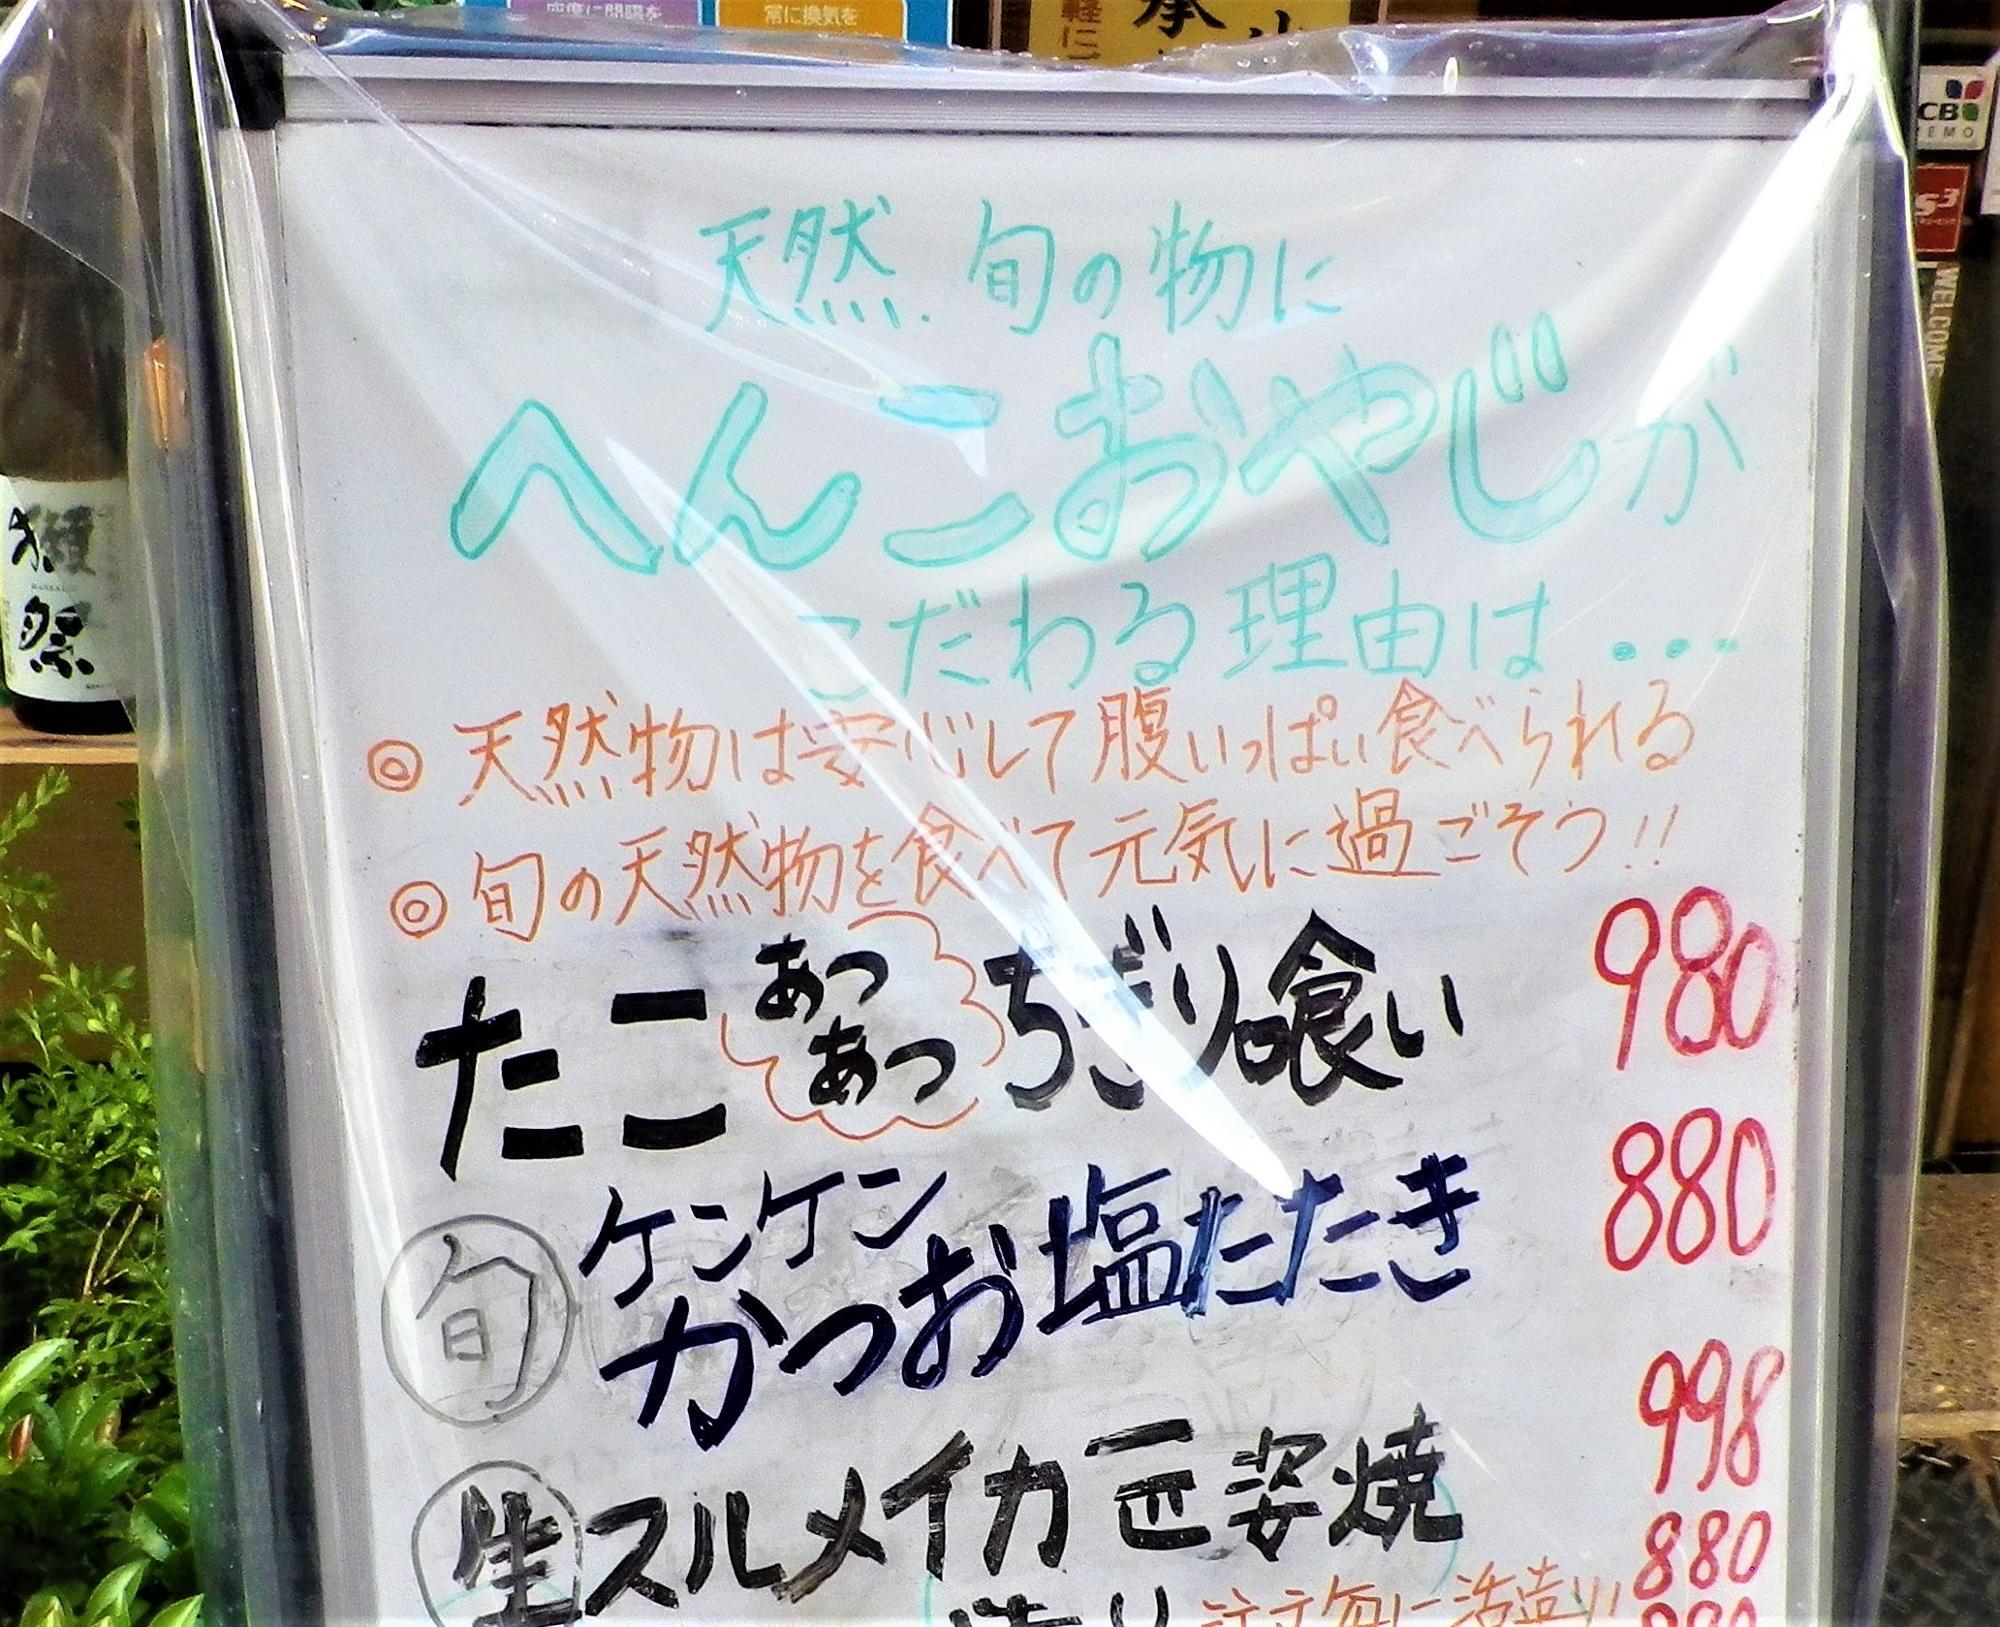 常に換気を
天然.旬の物に
へんこおやじが
こだわる理由は...
◎天然物は安心して腹いっぱい食べられる
◎旬の天然物を食べて元気に過ごそう!!
たこ あつあつ ちぎり喰い 980
旬 ケンケンかつお塩たたき 880
生 スルメイカ一匹姿焼 998
880
獺祭
WELCOME